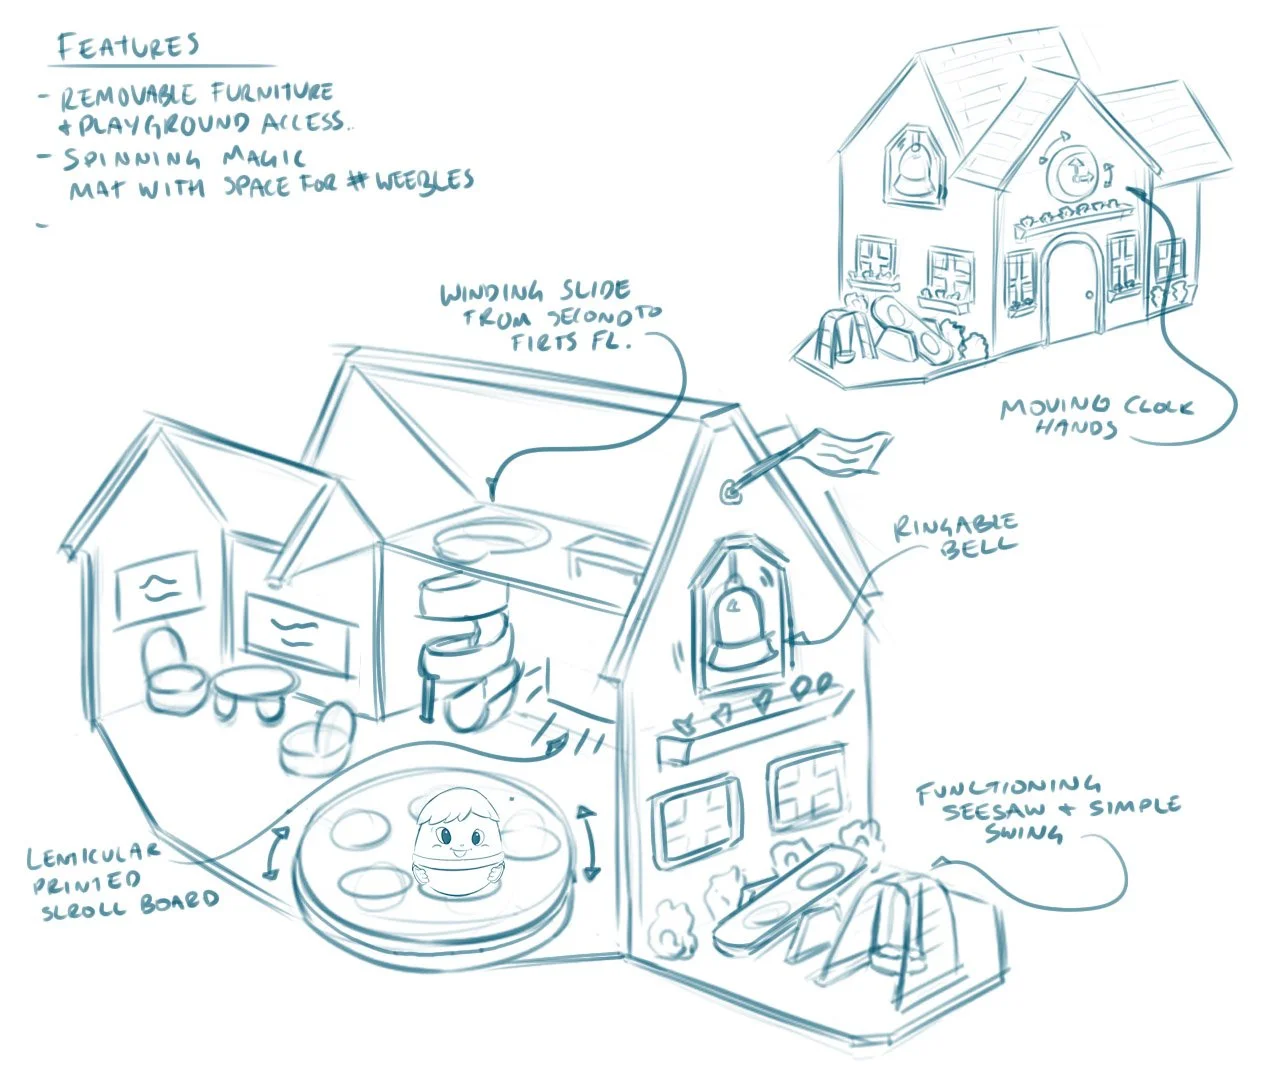 FEATURES
- REMOVABLE FURNITURE
+ PLAYGROUND ACCESS..
- SPINNING MAGIC
MAT WITH SPACE FOR # WEEBLES
-
WINDING SLIDE
FROM SECOND TO
FIRTS FL.
MOVING CLOCK
HANDS
RINGABLE
BELL
FUNCTIONING
SEESAW + SIMPLE
SWING
LENTICULAR
PRINTED
SCROLL BOARD